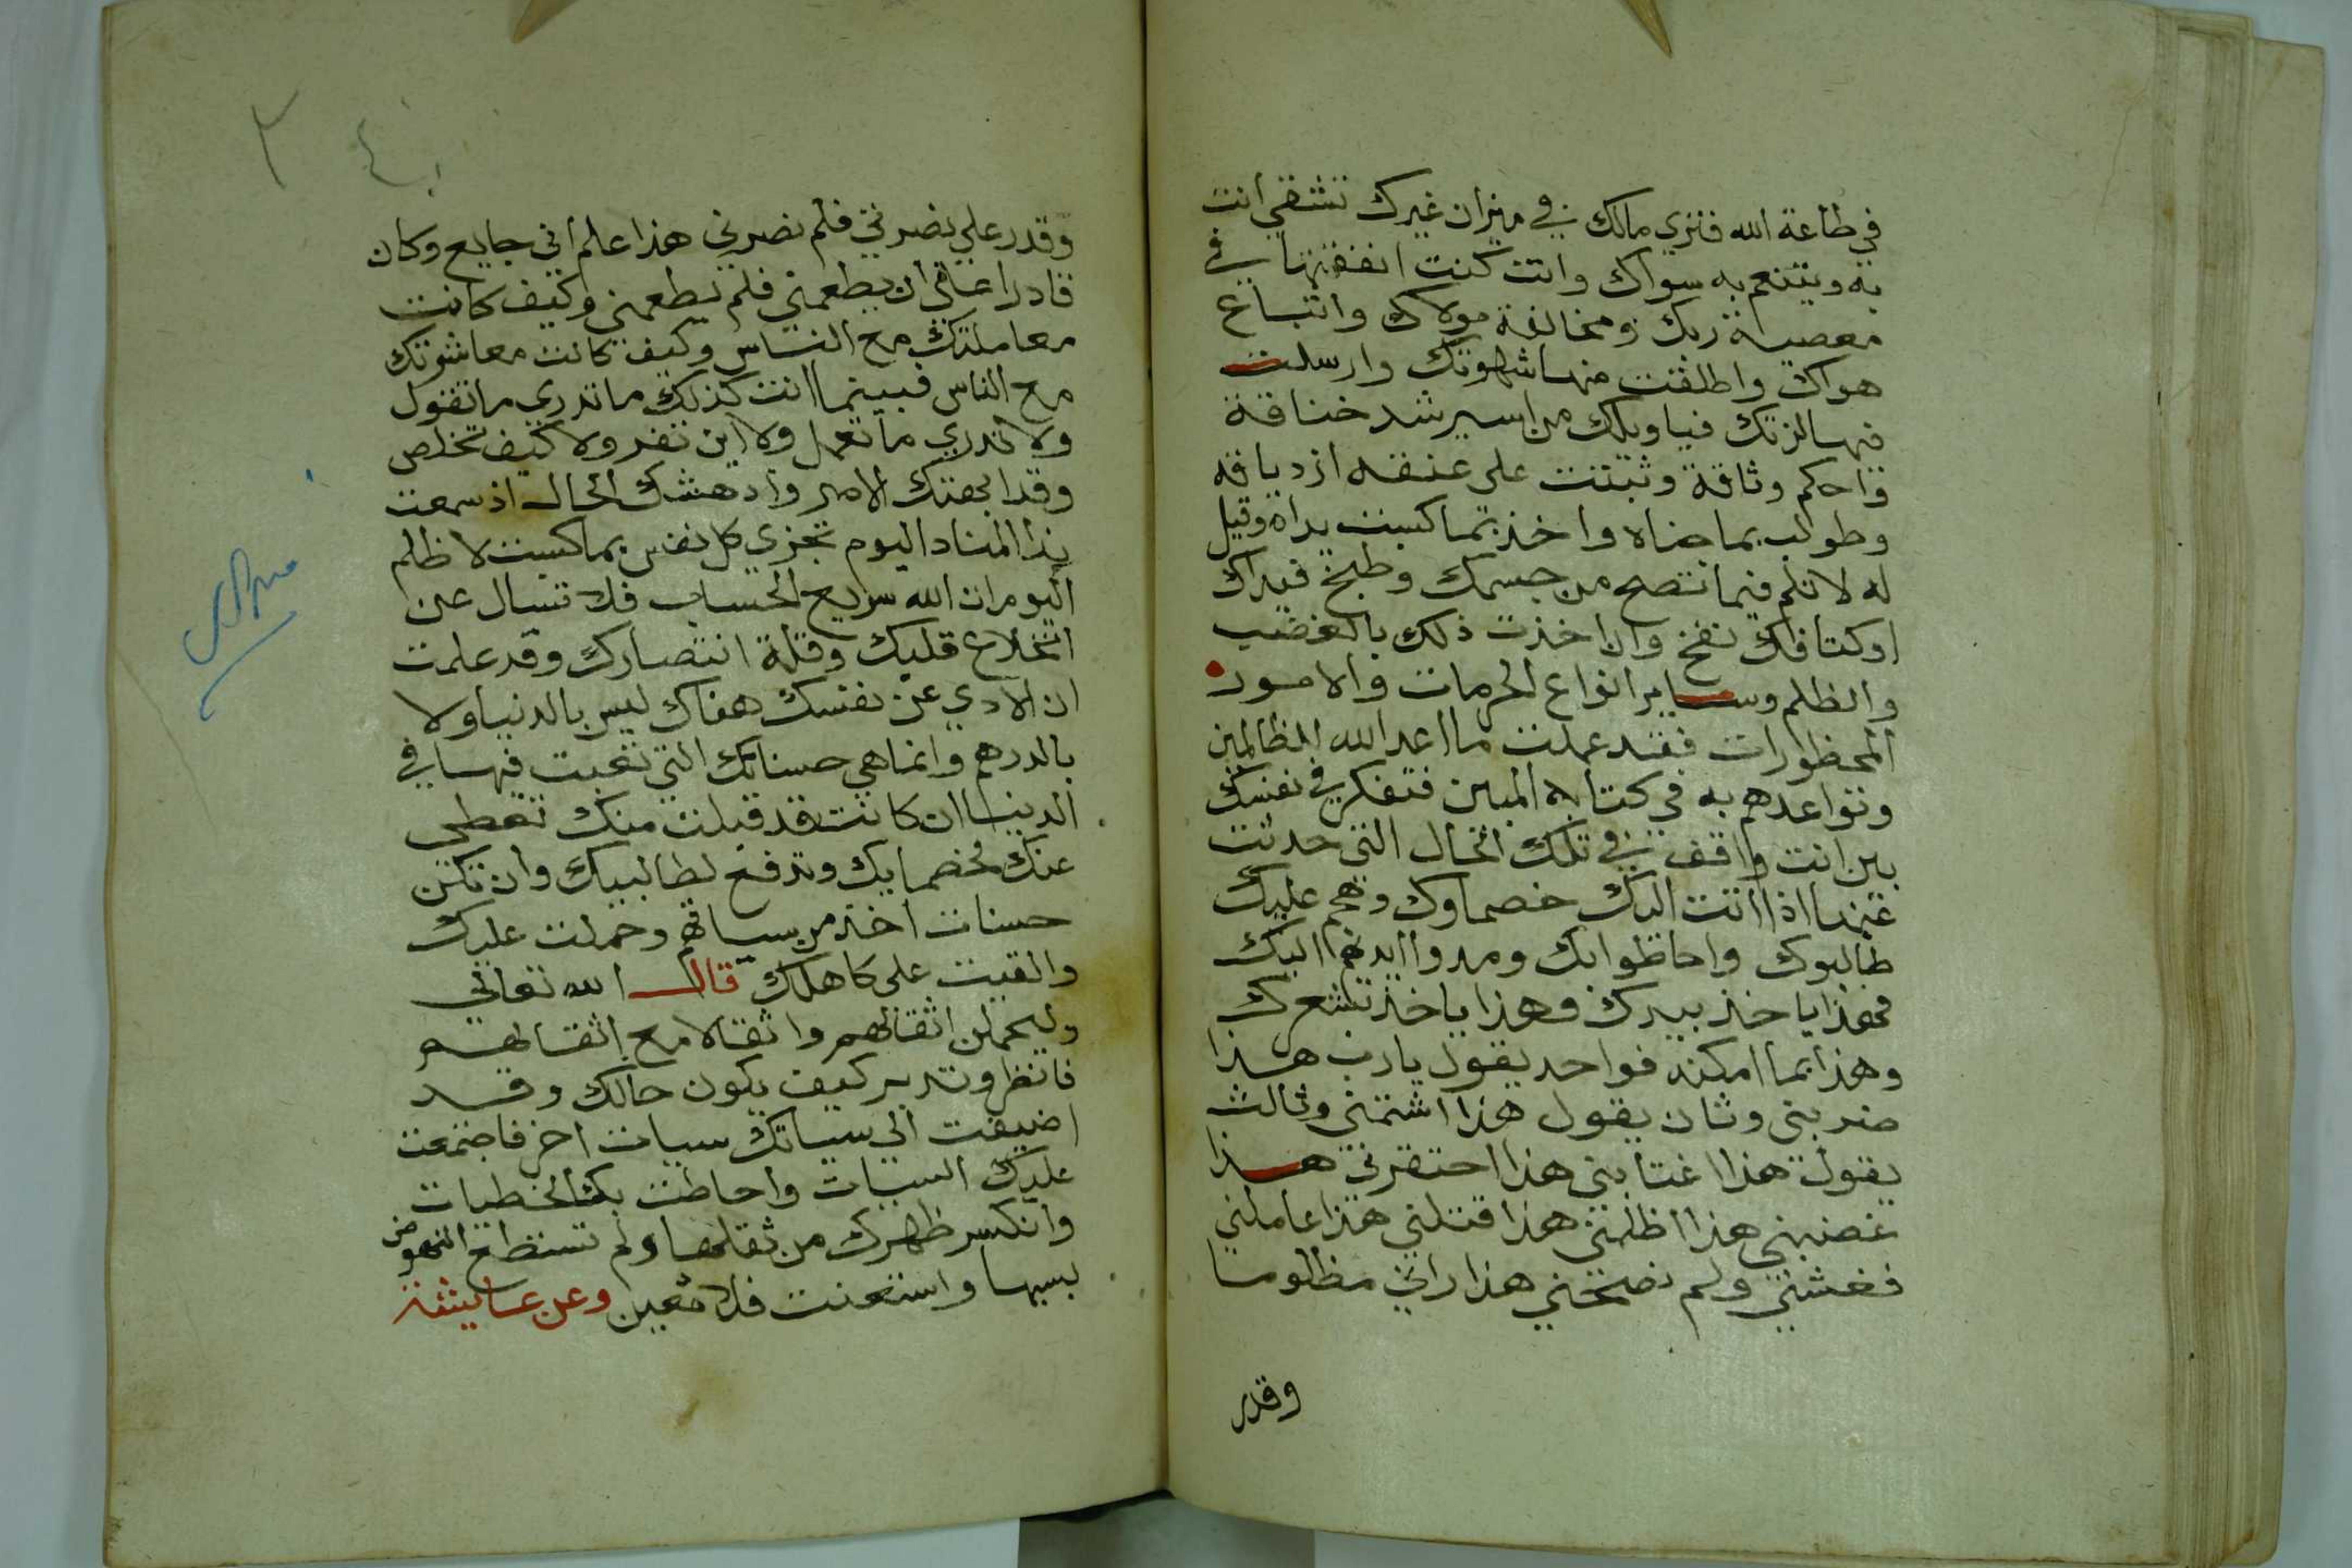 في طاعة الله فتري مالك في ميزان غيرك تشقي انت
به ويتنعم به سواك وانت كنت انفقتها في
معصية ربك ومخالفة مولاك واتباع
هواك واطلقت فيها شهوتك وارسلت
فيها لزتك فياويلك من اسير شد خناقة
واحكم وثاقة وثبتت على عنقه ازدياقه
وطولب بما جناه واخذ بما كسبت يداه وقيل
له لا تلم فيما نتصح من جسمك وطبخ فيداك
اوكتا فاك نفخ وان اخذت ذلك بالغضب
والظلم وساير انواع الحرمات والامور
المحظورات فقد عملت ما اعد الله للظالمين
وتواعدهم به في كتابه المبين فتفكر في نفسك
بين انت واقف في تلك الحال التي حدثت
عنها اذا اتت اليك خصماوك وهجم عليك
طالبوك واحاطوا بك ومدوا ايديهم اليك
فهذا ياخذ بيدك وهذا ياخذ بشعرك
وهذا بما امكنه فواحد يقول يارب هذا
ضربني وثان يقول هذا اشتمني وثالث
يقول هذا اغتابني هذا احتقرني هذا
غصبني هذا اظلمني هذا قتلني هذا عاملني
فغشني ولم نصحني هذا راني مظلوما
وقدر
وقدر علي نصرتي فلم نصرني هذا علم اني جايع وكان
قادرا على ان يطعمني فلم يطعمني وكيف كانت
معاملتك مع الناس وكيف كانت معاشوتك
مع الناس فبينما انت كذلك ما تدري ما تقول
ولا تدري ما تعمل ولا اين تفر ولا كيف تخلص
وقد ابجعتك الامر وادهشك الحال اذ سمعت
ندا المناد اليوم تجزي كل نفس بما كسبت لا ظلم
اليوم ان الله سريع الحساب فلا تسال عن
انخلاع قلبك وقلة انتصارك وقد علمت
ان الادي عن نفسك هناك ليس بالدنيا ولا
بالدرهم وانما هي حسناتك التي تعبت فيها في
الدنيا ان كانت قد قبلت منك تعطي
عنك لخصمايك وتدفع لطالبيك وان تكن
حسنات اخذ من سياتهم وحملت عليك
والقيت على كاهلك قال الله تعالى
وليحملن اثقالهم واثقالا مع اثقالهم
فانظر وتدبر كيف يكون حالك وقد
اضيفت الى سياتك سيات اخر فاجتمعت
عليك السيات واحاطت بك الخطيات
وانكسر ظهرك من ثقلها ولم تستطع النهوض
بسبها واستعنت فلا معين وعن عايشة